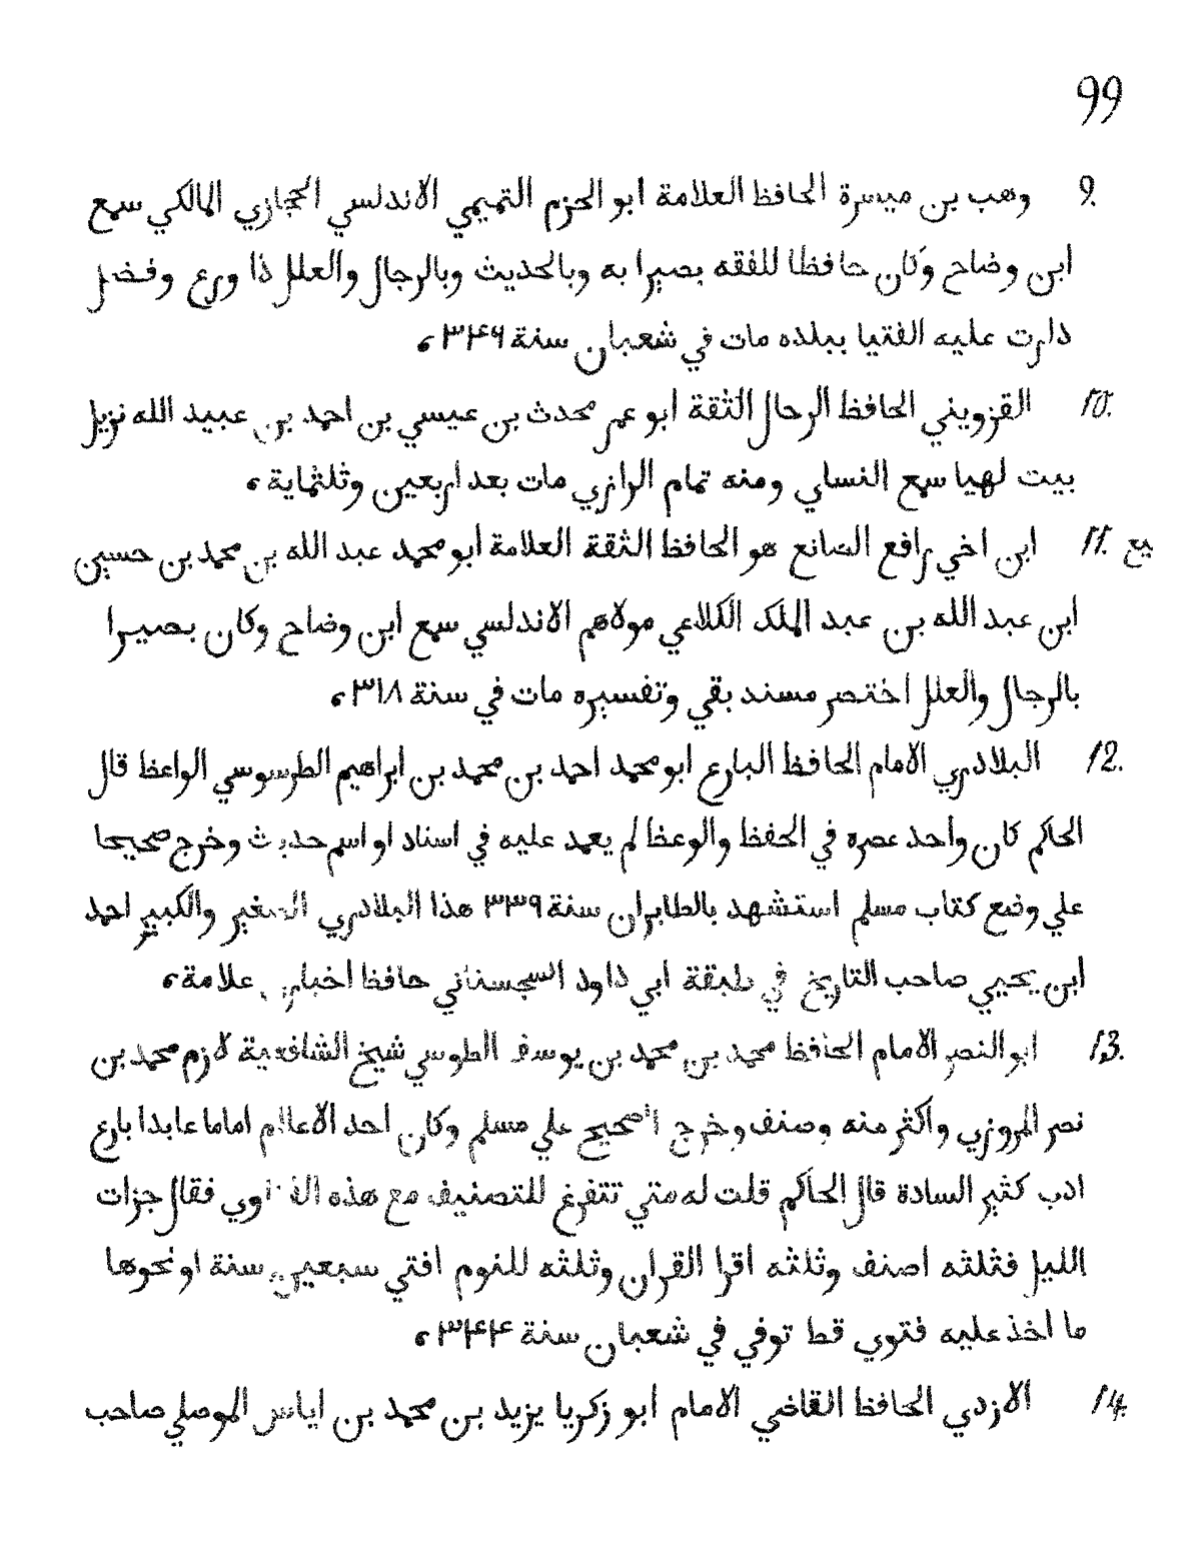 99
9. وهب بن ميسرة الحافظ العلامة ابو الحزم التميمي الاندلسي الحجازي المالكي سمع
ابن وضاح وكان حافظا للفقه بصيرا به وبالحديث وبالرجال والعلل ذا ورع وفضل
دارت عليه الفتيا ببلده مات في شعبان سنة ٣۴۶ ،
10. القزويني الحافظ الرحال الثقة ابو عمر محدث بن عيسي بن احمد بن عبيد الله نزيل
بيت لهيا سمع النساي ومنه تمام الرازي مات بعد اربعين وثلثماية ،
يع 11. ابن اخي رافع الصانع هو الحافظ الثقة العلامة ابو محمد عبد الله بن محمد بن حسين
ابن عبد الله بن عبد الملك الكلاعي مولاهم الاندلسي سمع ابن وضاح وكان بصيرا
بالرجال والعلل اختصر مسند بقي وتفسيره مات في سنة ٣١٨ ،
12. البلادري الامام الحافظ البارع ابو محمد احمد بن محمد بن ابراهيم الطرسوسي الواعظ قال
الحاكم كان واحد عصره في الحفظ والوعظ لم يعمد عليه في اسناد او اسم حديث وخرج صحيحا
علي وضع كتاب مسلم استشهد بالطابران سنة ٣٣٩ هذا البلادري الصغير والكبير احمد
ابن يحيي صاحب التاريخ في طبقة ابي داود السجستاني حافظ اخباري علامة ،
13. ابو النصر الامام الحافظ محمد بن محمد بن يوسف الطوسي شيخ الشافعية لازم محمد بن
نصر المروزي واكثر منه وصنف وخرج الصحيح علي مسلم وكان احد الاعلام اماما عابدا بارع
ادب كثير السادة قال الحاكم قلت له متي تتفرغ للتصنيف مع هذه الفتاوي فقال جزات
الليل فثلثه اصنف وثلثه اقرا القران وثلثه للنوم افتي سبعين سنة او نحوها
ما اخذ عليه فتوي قط توفي في شعبان سنة ٣۴۴ ،
14. الازدي الحافظ القاضي الامام ابو زكريا يزيد بن محمد بن اياس الموصلي صاحب